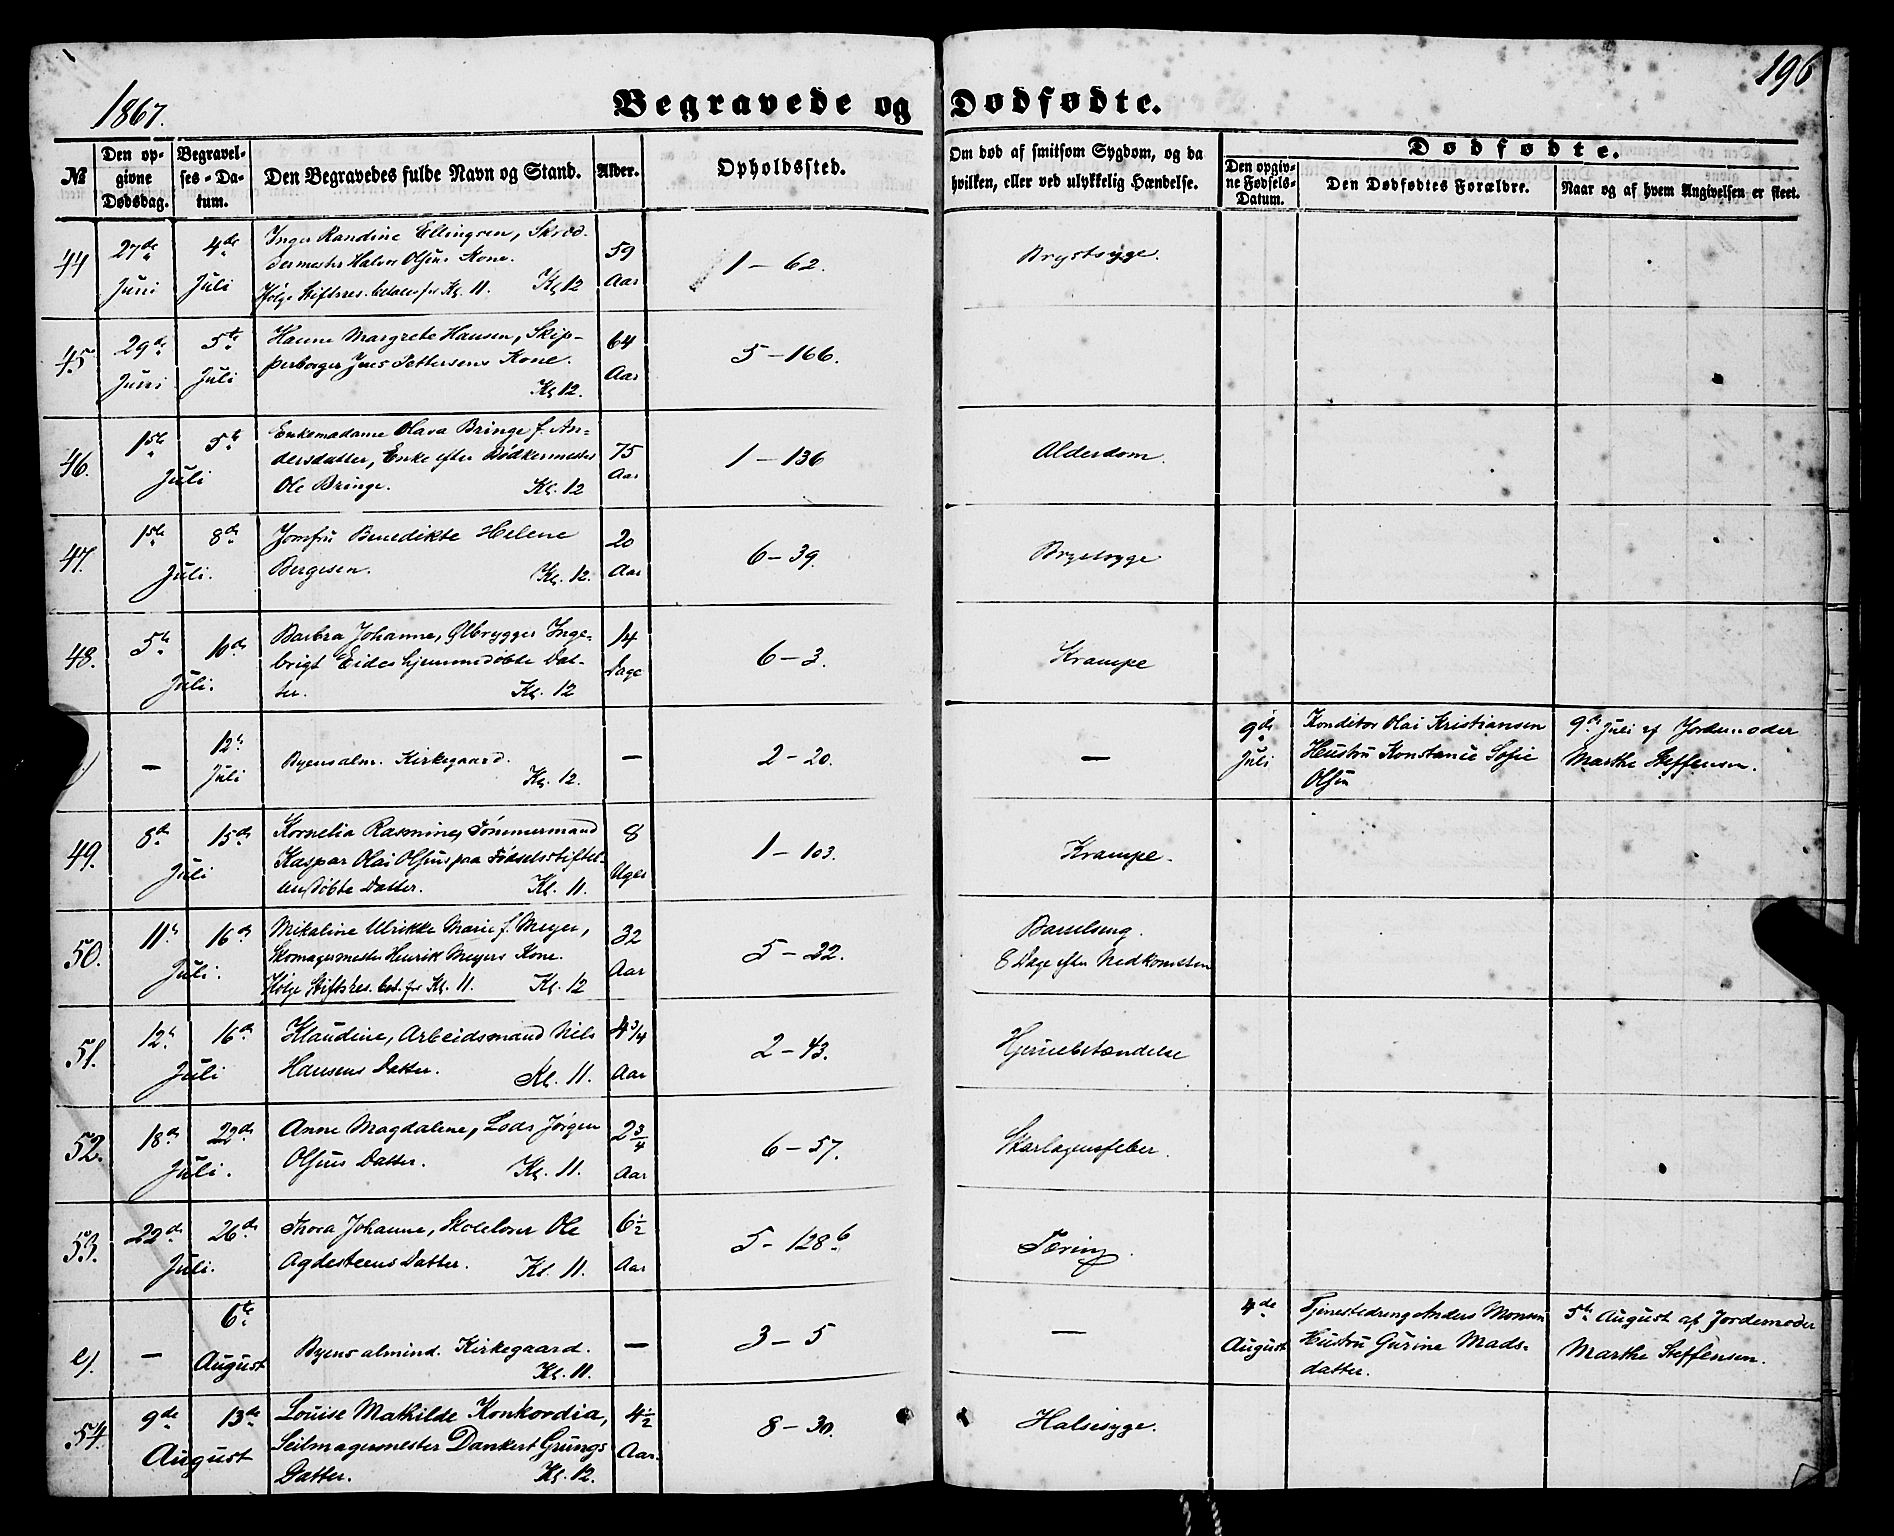 1867.
Begravede og Dødfødte.
196
№
Den opgivne Dødsdag.
Begravelses-Datum.
Den Begravedes fulde Navn og Stand.
Alder.
Opholdssted.
Om død af smitsom Sygdom, og da hvilken, eller ved ulykkelig Hændelse.
Dødfødte.
Den opgivne Fødsels-Datum.
Den Dødfødtes Forældre.
Naar og af hvem Angivelsen er skeet.
44 27de Juni 4de Juli
Inger Randine Ellingsen, Skræd-
dermester Halvor Olsens Kone.
Ifølge Stiftsres. betales for Kl. 11. Kl 12
59 Aar 1 - 62. Brystsyge.
45 29de Juni 5te Juli
Hanne Margrete Hansen, Skip-
perborger Jens Pettersens Kone.
Kl 12.
64 Aar 5 - 166.
46. 1ste 5te Juli
Enkemadame Olava Bringe f. An-
dersdatter, Enke efter Bødkermester
Ole Bringe. Kl. 12
75 Aar 1 - 136 Alderdom.
47. 1ste 8de Juli.
Jomfru Benedikte Helene
Bergesen. Kl. 12.
20 Aar 6 - 39. Brystsyge
48. 5te 10de Juli.
Barbra Johanne, Ølbrygger Inge-
brigt Eides hjemmedøbte Dat-
ter. Kl. 12
14 Dage 6 - 3. Krampe
— 12te Juli
Byens alm. Kirkegaard.
Kl. 12.
— 2 - 20. —
9de Juli
Konditor Olai Kristiansen
Hustru Konstance Sofie
Olsen
9de Juli af Jordemoder
Marthe Steffensen.
49. 8de 15de Juli
Kornelia Rasmine, Tømmermand
Kaspar Olai Olsens paa Fødselsstiftel-
sen døbte Datter. Kl. 11.
8 Uger 1 - 103. Krampe.
50. 11te 16de Juli.
Mikaline Ulrikke Marie f. Meyer,
Skomagermester Henrik Meyers Kone.
Ifølge Stiftsres. bet. for Kl. 11. Kl. 12
32 Aar 5 - 22. Barselseng.
8 Dage efter Nedkomsten
51. 12te 16de Juli
Klaudine, Arbeidsmand Nils
Hansens Datter. Kl. 11.
4 3/4 Aar 2 - 43. Hjernebetændelse
52. 18de 22de Juli.
Anne Magdalene, Lods Jørgen
Olsens Datter. Kl. 11.
2 3/4 Aar 6 - 57. Skarlagensfeber.
53. 22de 26de Juli.
Thora Johanne, Skolelærer Ole
Agdesteens Datter. Kl. 11.
6 1/2 Aar 5 - 128 b. Tæring.
e) — 6te August
Byens almind. Kirkegaard.
Kl. 11.
— 3 - 5 —
4de August
Tjenestedreng Anders Monsen
Hustru Gurine Mads-
datter.
5te August af Jordemoder
Marthe Steffensen.
54. 9de 13de August
Louise Mathilde Konkordia,
Seilmagermester Dankert Grungs
Datter. Kl. 12.
4 1/2 Aar. 8 - 30. Halsesyge.